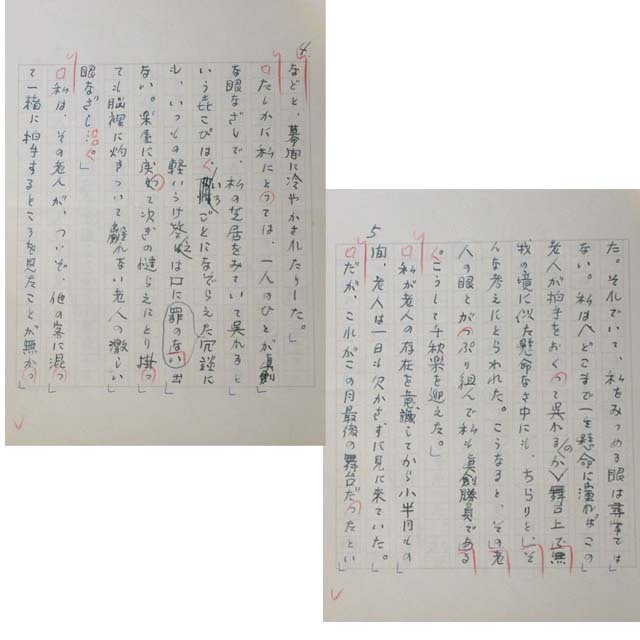 4.
などと、幕間に冷やかされたりした。
たしかに私にとっては、一人のひとが真剣
な眼なざしで、私の芝居をみていて呉れると
いう喜こびは、いろごとになぞらえた冗談に
も、いつもの軽いうけ答えは口に罪のない出
ない。楽屋に戻って次ぎの拵らえにとり掛っ
ても脳裡に灼きついて離れない老人の激しい
眼なざし…。
私は、その老人が、ついぞ、他の客に混っ
て一緒に拍手するところを見たことが無かっ
5
た。それでいて、私をみつめる眼は尋常では
ない。私はへどこまで一生懸命に演ればこの
老人が拍手をおくって呉れるのか〉舞台上で無
我の境に似た懸命なさ中にも、ちらりと、そ
んな考えにとらわれた。こうなると、その老
人の眼とがっぷり組んで私も真剣勝負である
。こうして千秋楽を迎えた。
私が老人の存在を意識してから小半月もの
間、老人は一日も欠かさずに見に来ていた。
だが、これがこの月最後の舞台だったとい